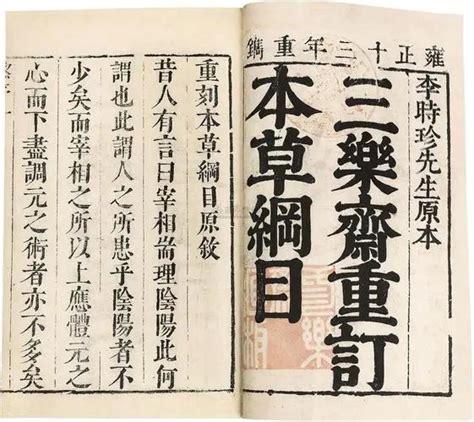 雍正十三年重鐫
李時珍先生原本
三樂齋重訂
本草綱目
重刻本草綱目原敘
昔人有言曰宰相理陰陽此何
謂也此謂人之所患乎陰陽者不
少矣而宰相之所以上應體元之
心而下盡調元之術者亦不多矣